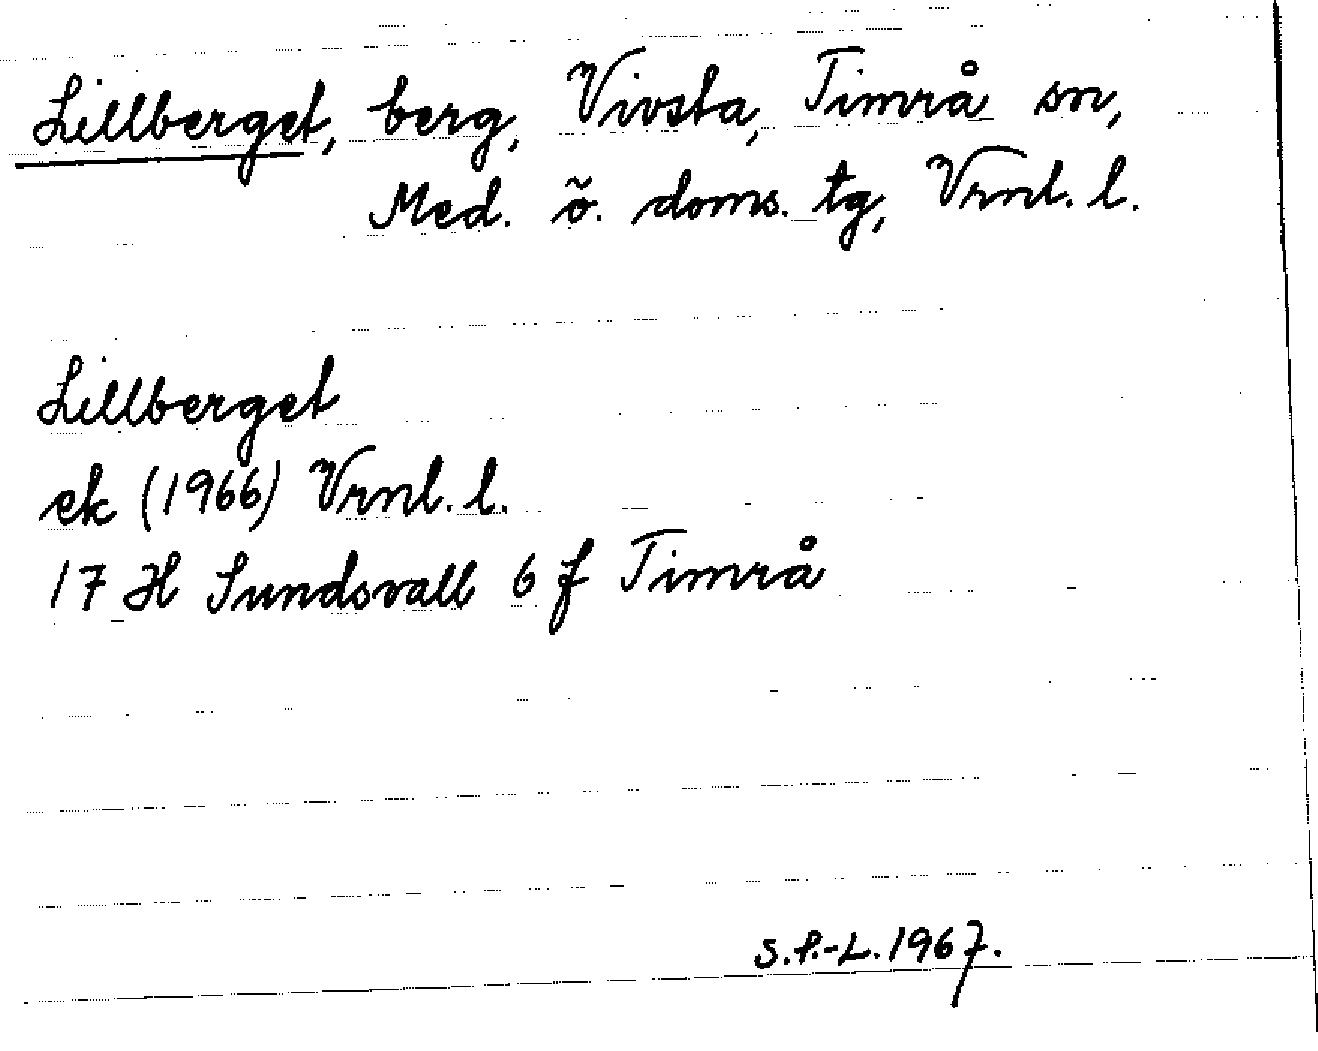 Lillberget, berg, Vivsta, Timrå sn,
Med. ö. doms. tg, Vrnl. l.
Lillberget
ek (1966) Vrnl. l.
17 H Sundsvall 6 f Timrå
S.P.-L. 1967.